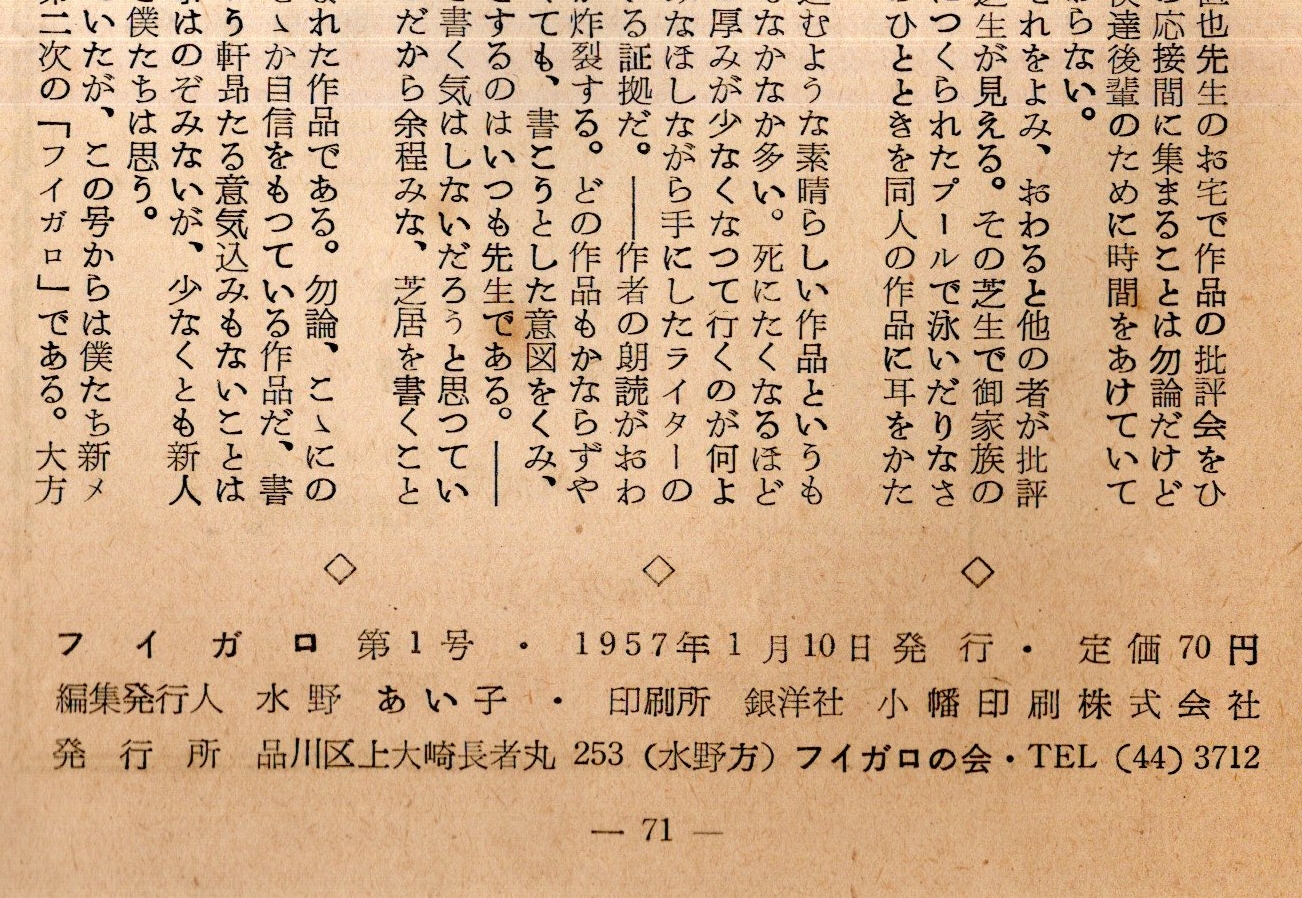 也先生のお宅で作品の批評会をひ
応接間に集まることは勿論だけど
達後輩のために時間をあけていて
らない。
れをよみ、おわると他の者が批評
芝生が見える。その芝生で御家族の
につくられたプールで泳いだりなさ
のひとときを同人の作品に耳をかた
込むような素晴らしい作品というも
なかなか多い。死にたくなるほど
厚みが少なくなつて行くのが何よ
みなほしながら手にしたライターの
る証拠だ。――作者の朗読がおわ
炸裂する。どの作品もかならずや
ても、書こうとした意図をくみ、
とするのはいつも先生である。――
書く気はしないだろうと思つてい
だから余程みな、芝居を書くこと
れた作品である。勿論、こゝにの
ゝか自信をもつている作品だ、書
う軒昻たる意気込みもないことは
はのぞみないが、少なくとも新人
僕たちは思う。
いたが、この号からは僕たち新メ
第二次の「フイガロ」である。大方
◇ ◇ ◇
フイガロ 第1号・1957年1月10日発行・定価70円
編集発行人 水野あい子・印刷所 銀洋社 小幡印刷株式会社
発行所 品川区上大崎長者丸 253（水野方）フイガロの会・TEL (44) 3712
― 71 ―